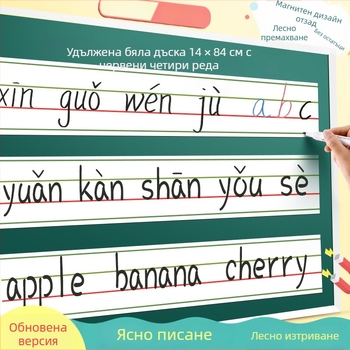 Магнитен дизайн отзад
Лесно премахване
Без остатъци
Удължена бяла дъска 14 × 84 см с
червени четири реда
xīn guǒ wén jù a b c
yuǎn kàn shān yǒu sè
apple banana cherry
Обновена версия
Ясно писане
Лесно изтриване